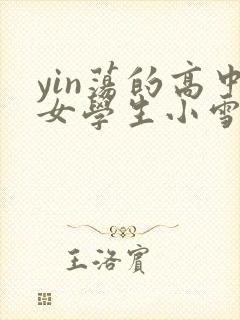 yin蕩的高中
女學生小雪
王洛賓